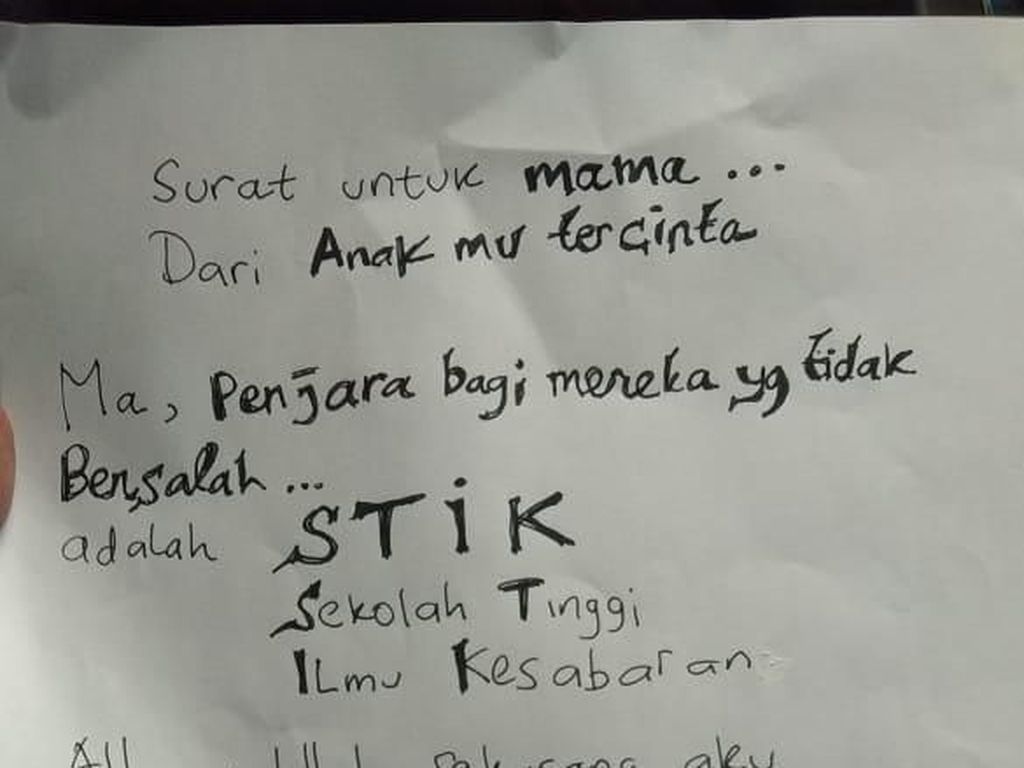 Surat untuk mama ...
Dari Anak mu tercinta
Ma, Penjara bagi mereka yg tidak
Bersalah ...
adalah STiK
Sekolah Tinggi
ILmu Kesabaran
aku